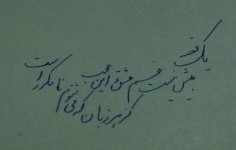 یک قصه
بیش نیست غم عشق و این عجب
کز هر زبان که می شنوم نامکرر است